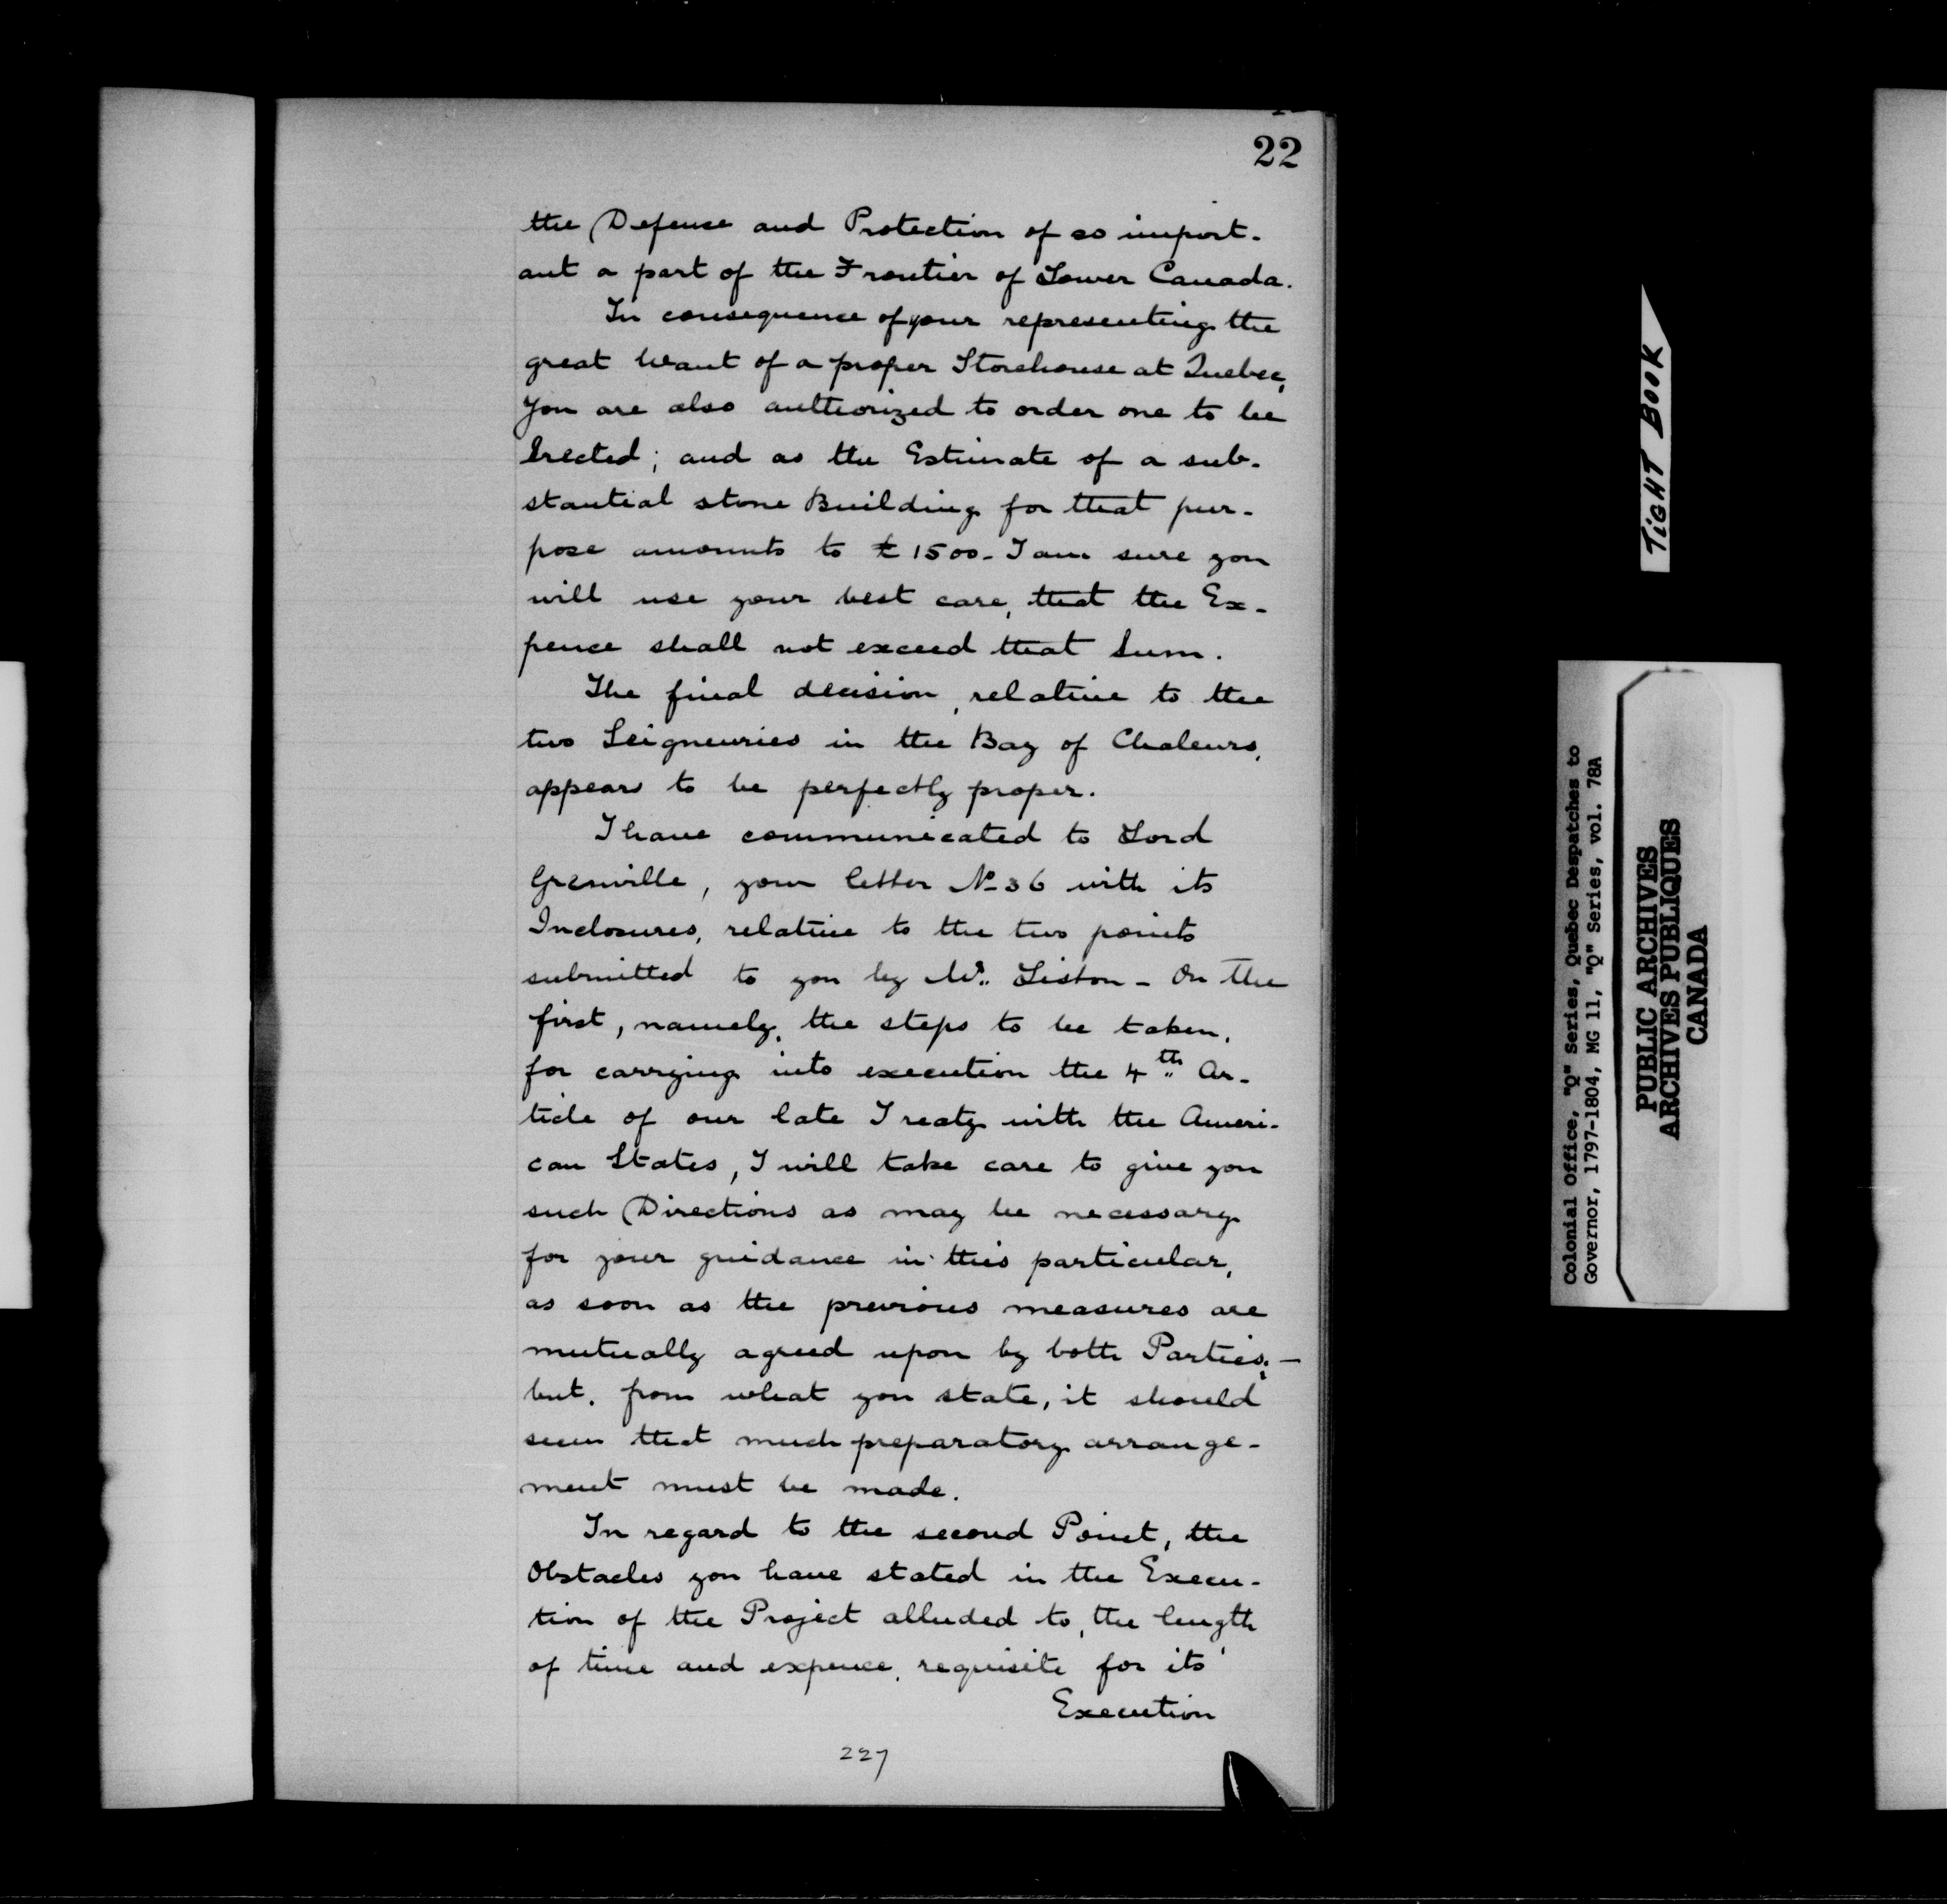 22
the Defence and Protection of so import-
ant a part of the Frontier of Lower Canada.
In consequence of your representing the
great want of a proper Storehouse at Quebec,
you are also authorized to order one to be
Erected; and as the Estimate of a sub-
stantial stone Building for that pur-
pose amounts to £1500 - I am sure you
will use your best care, that the Ex-
pence shall not exceed that Sum.
The final decision, relative to the
two Seigneuries in the Bay of Chaleurs,
appears to be perfectly proper.
I have communicated to Lord
Grenville, your letter No 36 with its
Inclosures, relative to the two points
submitted to you by Mr. Liston - On the
first, namely, the steps to be taken,
for carrying into execution the 4th Ar-
ticle of our late Treaty with the Ameri-
can States, I will take care to give you
such Directions as may be necessary
for your guidance in this particular,
as soon as the previous measures are
mutually agreed upon by both Parties; -
but, from what you state, it should
seem that much preparatory arrange-
ment must be made.
In regard to the second Point, the
Obstacles you have stated in the Execu-
tion of the Project alluded to, the length
of time and expence, requisite for its
Execution
227
TIGHT BOOK
Colonial Office, "Q" Series, Quebec Despatches to
Governor, 1797-1804, MG 11, "Q" Series, vol. 78A
PUBLIC ARCHIVES
ARCHIVES PUBLIQUES
CANADA